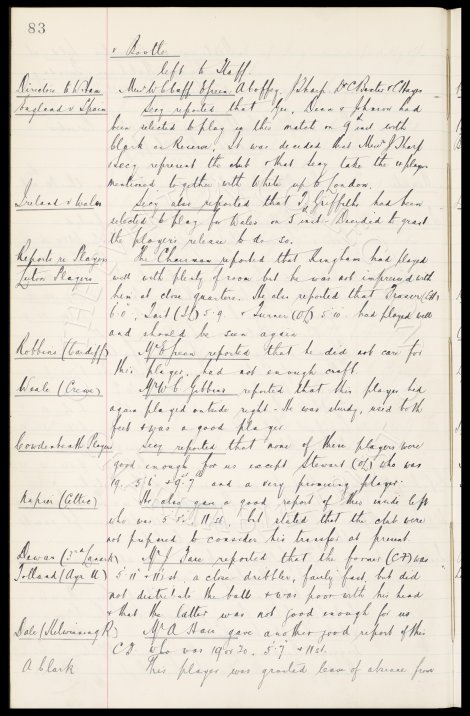 83
v Bootle
left to Staff.
Directors to W. Ham Messrs W C Cuff E Green A Coffey, J Sharp Dr C Baxter & C Hayes
England v Spain Secy reported that Geo, Dean & Johnson had
been selected to play in this match on 9th inst with
Clark as Reserve. It was decided that Messrs J Sharp
& Secy represent the club & that they take the players
mentioned together with White up to London.
Ireland v Wales Secy also reported that T. Griffiths had been
selected to play for Wales on 5 inst - Decided to grant
the players release to do so.
Reports re Players The Chairman reported that Kingham had played
Luton Players well with plenty of room but he was not impressed with
him at close quarters. He also reported that
6.0, (IL) 5.9 & Turner (OL) 5.10 had played well
and should be seen again
Robbins (Cardiff) Mr E Green reported that he did not care for
this player, had not enough craft
Weale (Crewe) Mr W C Gibbins reported that this player had
again played outside right - He was sturdy, used both
feet & was a good player
Cowdenbeath Players Secy reported that none of these players were
good enough for us except Stewart (OL) who was
19, 5.6 & 9.7 and a very promising player.
Napier (Celtic) He also gave a good report of this inside left
who was 5.8. 11 st. but stated that the club were
not prepared to consider his transfer at present
Dewar (3rd Lanark) Mr J Fare reported that the former (CF) was
Tolland (Ayr U) 5.11 & 11 st, a close dribbler, fairly fast but did
not distribute the ball & was poor with his head
& that the latter was not good enough for us
Dale (Kilwinning R) Mr A Hare gave another good report of this
C.F. who was 19 or 20, 5.7 & 11 st.
A Clark This player was granted leave of absence from